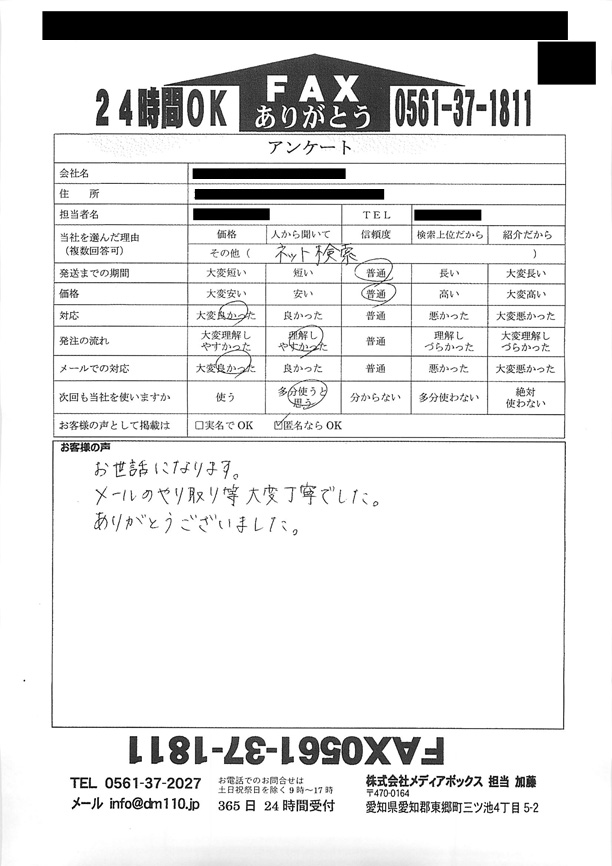 24時間OK FAX ありがとう 0561-37-1811
アンケート
会社名
住 所
担当者名 TEL
当社を選んだ理由（複数回答可） 価格 人から聞いて 信頼度 検索上位だから 紹介だから
その他（ ネット検索 ）
発送までの期間 大変短い 短い 普通 長い 大変長い
価格 大変安い 安い 普通 高い 大変高い
対応 大変良かった 良かった 普通 悪かった 大変悪かった
発注の流れ 大変理解しやすかった 理解しやすかった 普通 理解しづらかった 大変理解しづらかった
メールでの対応 大変良かった 良かった 普通 悪かった 大変悪かった
次回も当社を使いますか 使う 多分使うと思う 分からない 多分使わない 絶対使わない
お客様の声として掲載は □実名でOK ☑匿名ならOK
お客様の声
お世話になります。
メールのやり取り等大変丁寧でした。
ありがとうございました。
FAX0561-37-1811
TEL 0561-37-2027 お電話でのお問合せは 株式会社メディアボックス 担当 加藤
土日祝祭日を除く9時〜17時 〒470-0164
メール info@dm110.jp 365日24時間受付 愛知県愛知郡東郷町三ツ池4丁目5-2